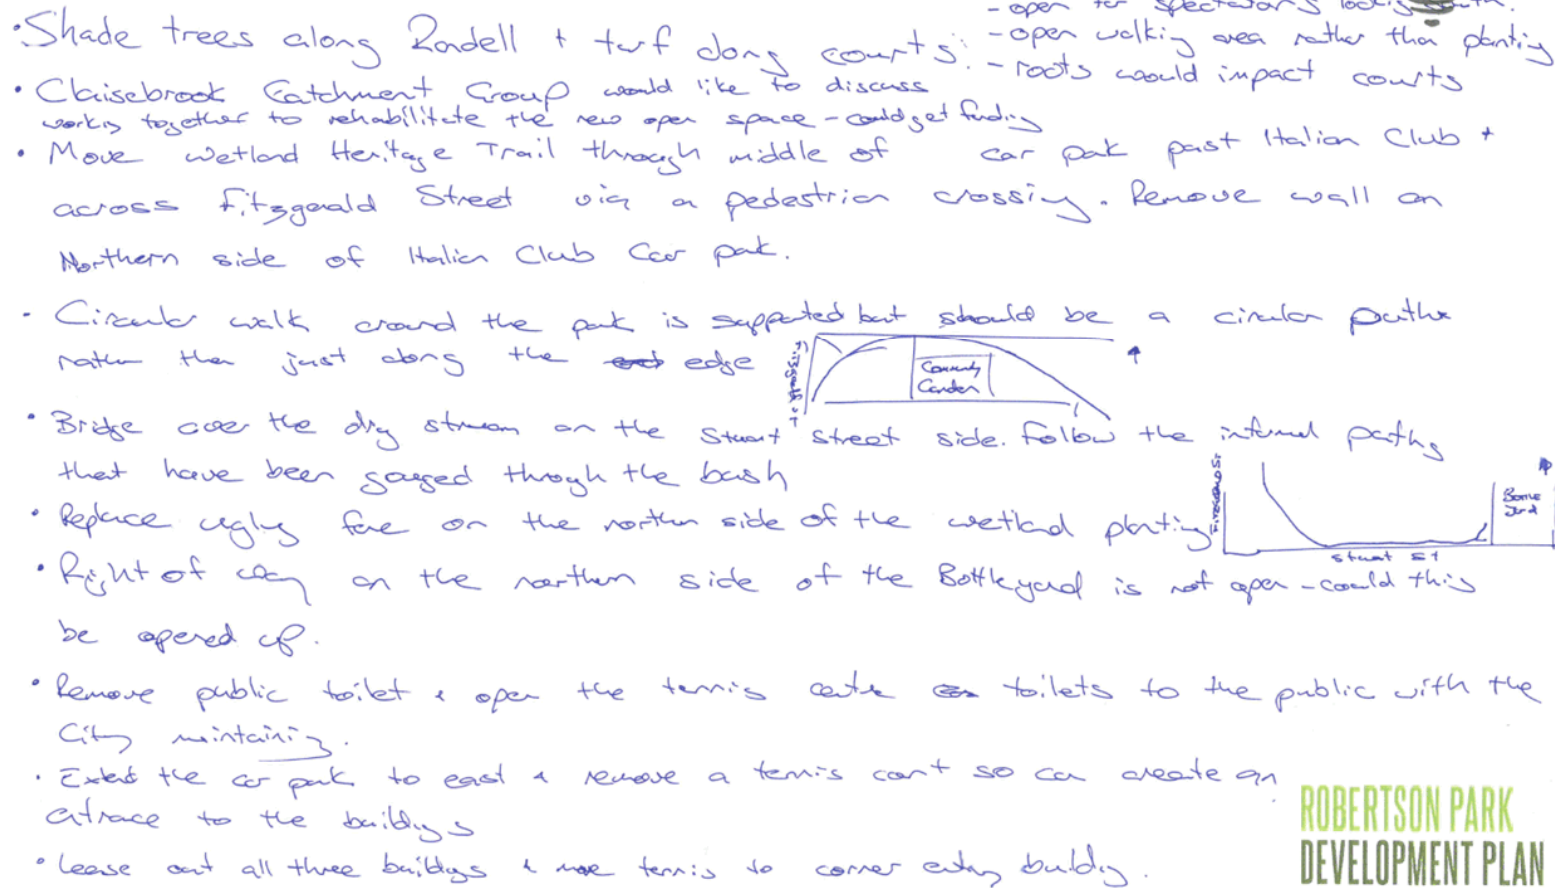 - open for spectators looking
• Shade trees along Randell + turf along courts: - open walking area rather than planting
- roots would impact courts
• Claisebrook Catchment Group would like to discuss
working together to rehabilitate the new open space - could get funding
• Move Wetland Heritage Trail through middle of car park past Italian Club +
across Fitzgerald Street via a pedestrian crossing. Remove wall on
Northern side of Italian Club Car park.
• Circular walk around the park is supported but should be a circular path
rather than just along the edge
Fitzgerald St
Community
Garden
• Bridge over the dry stream on the Stuart Street side. Follow the informal paths
that have been gouged through the bush
Fitzgerald St
Bottle
Yard
Stuart St
• Replace ugly fence on the northern side of the wetland planting
• Right of way on the northern side of the Bottleyard is not open - could this
be opened up.
• Remove public toilet & open the tennis centre toilets to the public with the
City maintaining.
• Extend the car park to east & remove a tennis court so can create an
entrance to the buildings
• Lease out all three buildings & move tennis to corner building.
ROBERTSON PARK
DEVELOPMENT PLAN